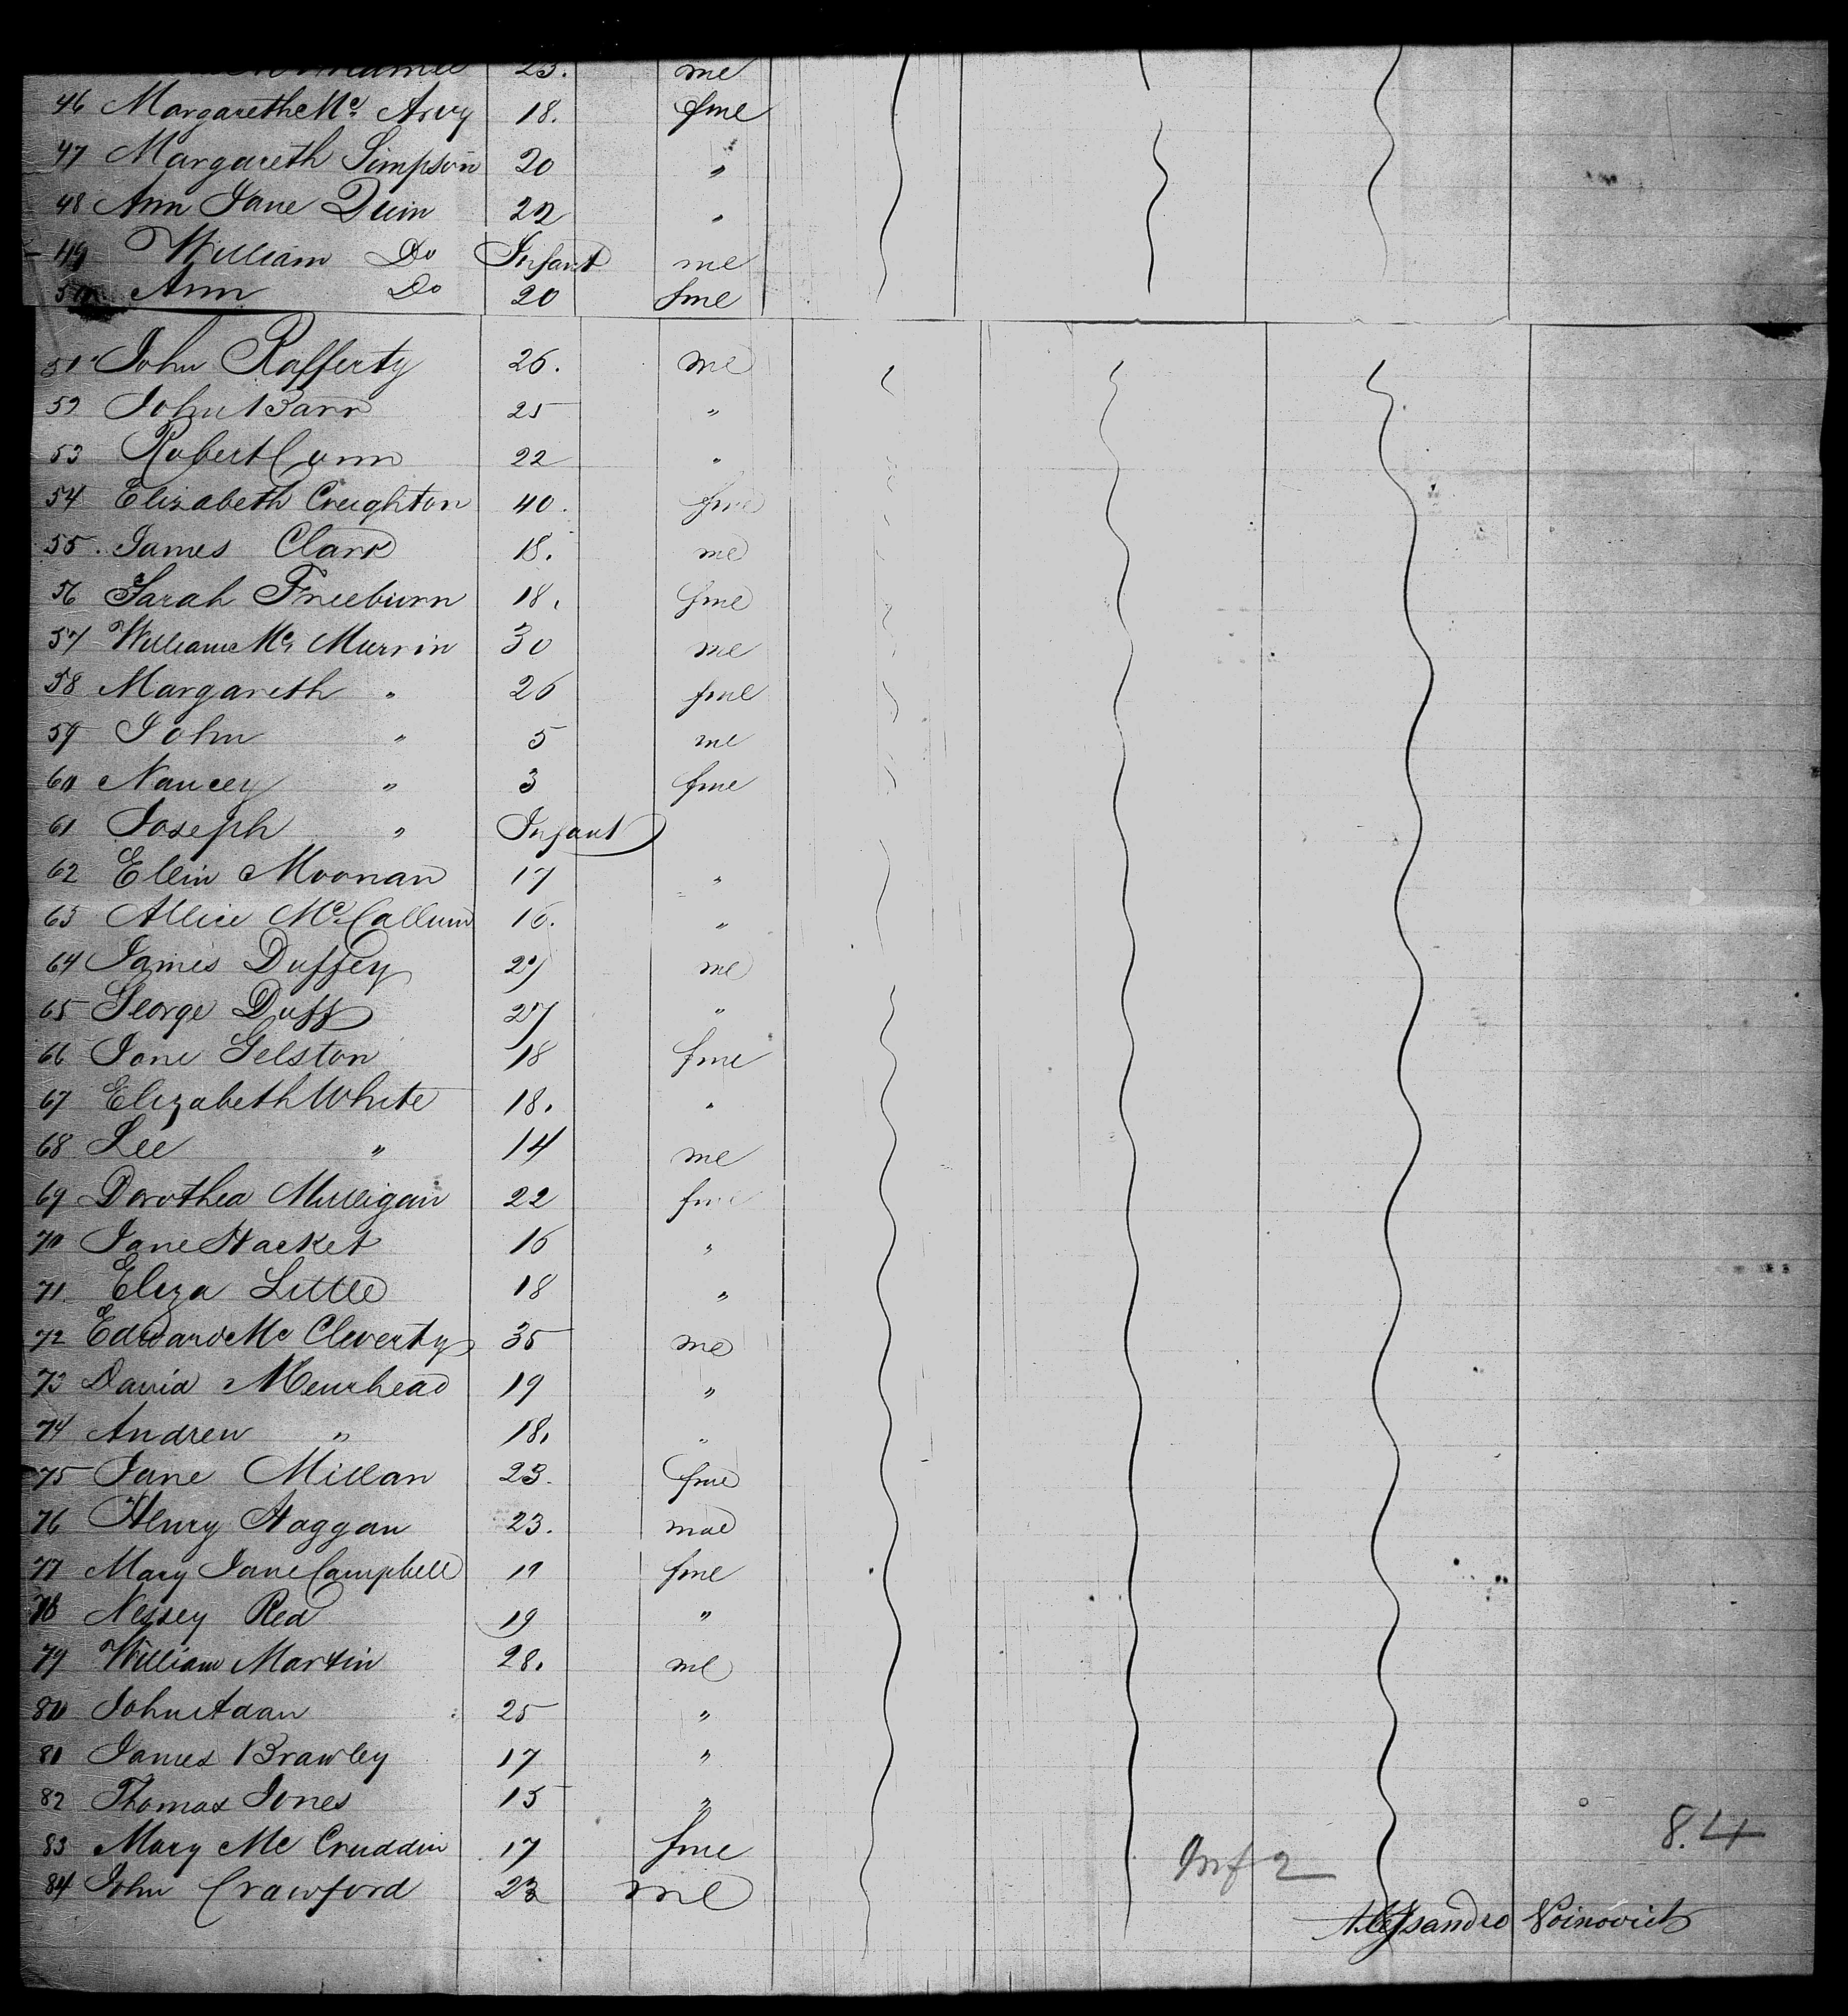 23. me
46 Margareth Mc Arvy 18. fme
47 Margareth Simpson 20 "
48 Ann Jane Quin 22 "
49 William Do Infant me
50 Ann Do 20 fme
51 John Rafferty 26. me
52 John Barr 25 "
53 Robert Conn 22 "
54 Elizabeth Creighton 40. fme
55. James Clark 18. me
56 Sarah Freeburn 18. fme
57 William Mc Murrin 30 me
58 Margareth " 26 fme
59 John " 5 me
60 Nancey " 3 fme
61 Joseph " Infant
62 Ellin Moonan 17 "
63 Allice Mc Callum 16. "
64 James Duffey 27 me
65 George Duff 27 "
66 Jane Gelston 18 fme
67 Elizabeth White 18. "
68 Lee " 14 me
69 Dorothea Mulligan 22 fme
70 Jane Hacket 16 "
71 Eliza Little 18 "
72 Edward Mc Cleverty 35 me
73 David Meurhead 19 "
74 Andrew " 18. "
75 Jane Millan 23. fme
76 Henry Haggan 23. mae
77 Mary Jane Campbell 17 fme
78 Nessey Rea 19 "
79 William Martin 28. me
80 John Adan 25 "
81 James Brawley 17 "
82 Thomas Jones 15 "
83 Mary Mc Cruddin 17 fme
84 John Crawford 23 me
Inf 2
8.4
Alessandro Voinovich